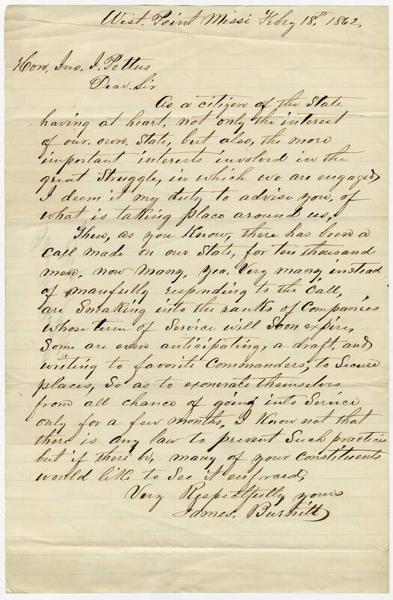 West. Point Missi Feby 18th 1862,
Hon. Jno. J. Pettus
Dear. Sir
As a citizen of the State
having at heart, not only the interest
of our. own. State, but also, the more
important interests involved in the
great Struggle, in which we are engaged,
I deem it my duty to advise you, of
what is taking place around us,
Then, as you know, there has been a
call made on our State, for ten thousand
men, now many, yea, very many, instead
of manfully responding to the Call,
are Sneaking into the ranks of Companies
whose term of Service will Soon expire,
Some are even anticipating, a draft, and
writing to favorite Commanders, to Secure
places, So as to exonerate themselves
from all chance of going into Service
only for a few months, I know not that
there is any law to prevent Such practices
but if there is, many of your constituents
would like to See it enforced,
Very Respectfully yours
James.